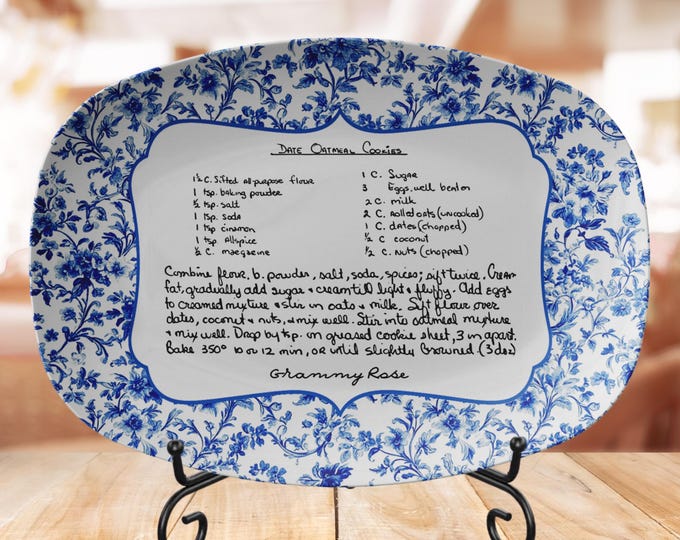 Date Oatmeal Cookies
1½ C. Sifted all-purpose flour
1 tsp. baking powder
½ tsp. salt
1 tsp. Soda
1 tsp cinamon
1 tsp allspice
½ C. margarine
1 C. Sugar
3 Eggs, well beaten
2 C. milk
2 C rolled oats (uncooked)
1 C. dates (chopped)
½ C coconut
½ C. nuts (chopped)
Combine flour, b. powder, salt, soda, spices; sift twice. Cream
fat, gradually add sugar & cream till light & fluffy. Add eggs
to creamed mixture & stir in oats & milk. Sift flour over
dates, coconut & nuts, & mix well. Stir into oatmeal mixture
& mix well. Drop by tsp. on greased cookie sheet, 3 in apart.
Bake 350° 10 or 12 min, or until slightly browned. (3 doz)
Grammy Rose